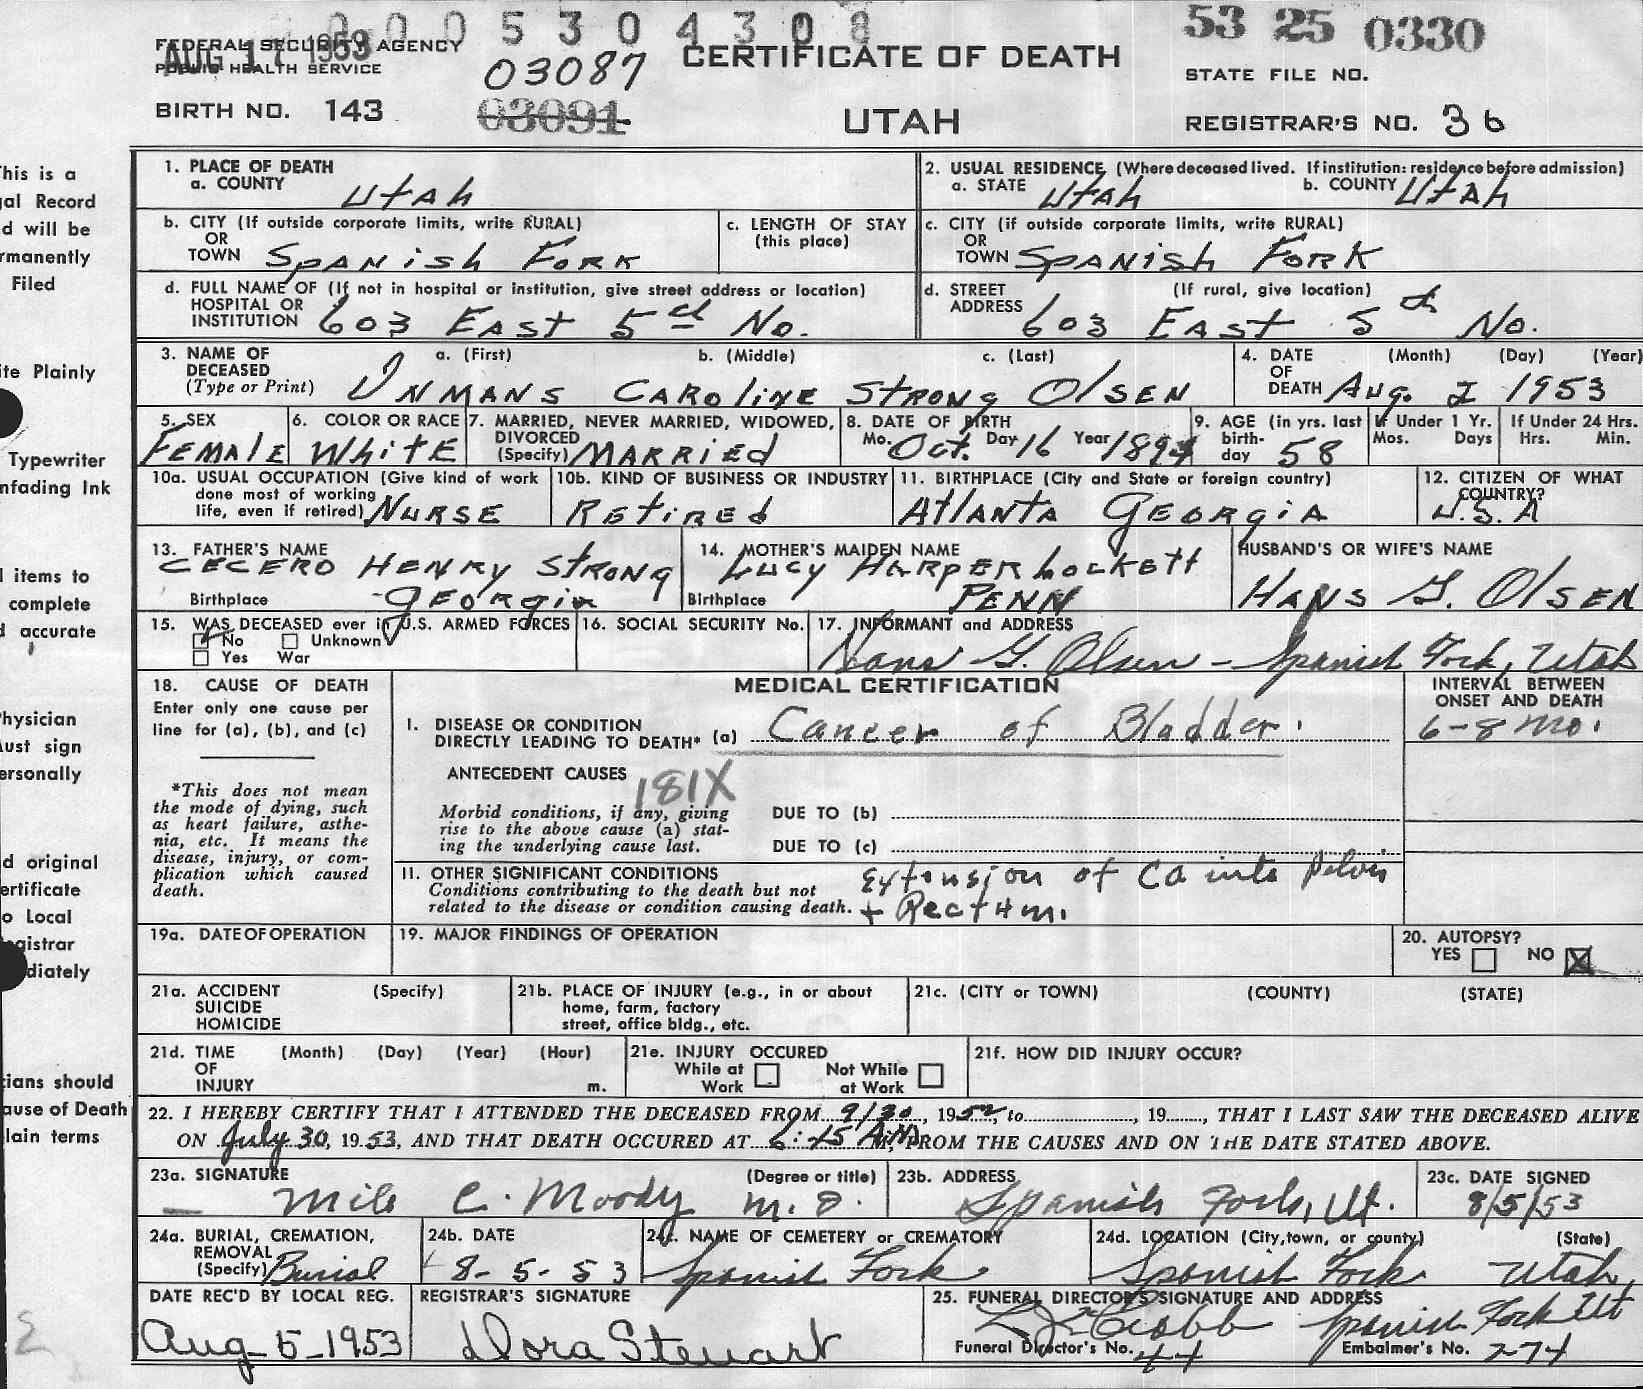 0005304308
53 25 0330
FEDERAL SECURITY AGENCY
AUG 17 1953
PUBLIC HEALTH SERVICE
03087
CERTIFICATE OF DEATH
STATE FILE NO.
BIRTH NO. 143
03091
UTAH
REGISTRAR'S NO. 36
This is a
Legal Record
and will be
Permanently
Filed
Write Plainly
Typewriter
Unfading Ink
All items to
complete
and accurate
Physician
Must sign
Personally
original
Certificate
to Local
Registrar
Immediately
Physicians should
Cause of Death
plain terms
1. PLACE OF DEATH
a. COUNTY Utah
2. USUAL RESIDENCE (Where deceased lived. If institution: residence before admission)
a. STATE Utah b. COUNTY Utah
b. CITY (If outside corporate limits, write RURAL)
OR
TOWN Spanish Fork
c. LENGTH OF STAY
(this place)
c. CITY (if outside corporate limits, write RURAL)
OR
TOWN Spanish Fork
d. FULL NAME OF (If not in hospital or institution, give street address or location)
HOSPITAL OR
INSTITUTION 603 East 5th No.
d. STREET (If rural, give location)
ADDRESS 603 East 5th No.
3. NAME OF a. (First) b. (Middle) c. (Last)
DECEASED
(Type or Print) Inmans Caroline Strong Olsen
4. DATE (Month) (Day) (Year)
OF
DEATH Aug. 2 1953
5. SEX
Female
6. COLOR OR RACE
White
7. MARRIED, NEVER MARRIED, WIDOWED,
DIVORCED
(Specify) Married
8. DATE OF BIRTH
Mo. Oct. Day 16 Year 1894
9. AGE (in yrs. last
birth-
day 58
If Under 1 Yr.
Mos. Days
If Under 24 Hrs.
Hrs. Min.
10a. USUAL OCCUPATION (Give kind of work
done most of working
life, even if retired) Nurse
10b. KIND OF BUSINESS OR INDUSTRY
Retired
11. BIRTHPLACE (City and State or foreign country)
Atlanta Georgia
12. CITIZEN OF WHAT
COUNTRY?
U.S.A
13. FATHER'S NAME
Cecero Henry Strong
Birthplace Georgia
14. MOTHER'S MAIDEN NAME
Lucy Harper Lockett
Birthplace Penn
HUSBAND'S OR WIFE'S NAME
Hans G. Olsen
15. WAS DECEASED ever in U.S. ARMED FORCES
No Unknown
Yes War
16. SOCIAL SECURITY No.
17. INFORMANT and ADDRESS
Hans G. Olsen - Spanish Fork, Utah
18. CAUSE OF DEATH
Enter only one cause per
line for (a), (b), and (c)
*This does not mean
the mode of dying, such
as heart failure, asthe-
nia, etc. It means the
disease, injury, or com-
plication which caused
death.
MEDICAL CERTIFICATION
INTERVAL BETWEEN
ONSET AND DEATH
I. DISEASE OR CONDITION
DIRECTLY LEADING TO DEATH* (a) Cancer of Bladder.
6-8 Mo.
ANTECEDENT CAUSES
181X
Morbid conditions, if any, giving
rise to the above cause (a) stat-
ing the underlying cause last.
DUE TO (b)
DUE TO (c)
11. OTHER SIGNIFICANT CONDITIONS
Conditions contributing to the death but not
related to the disease or condition causing death.
Extension of Ca into Pelvis
+ Rectum.
19a. DATE OF OPERATION
19. MAJOR FINDINGS OF OPERATION
20. AUTOPSY?
YES NO X
21a. ACCIDENT (Specify)
SUICIDE
HOMICIDE
21b. PLACE OF INJURY (e.g., in or about
home, farm, factory
street, office bldg., etc.
21c. (CITY or TOWN) (COUNTY) (STATE)
21d. TIME (Month) (Day) (Year) (Hour)
OF
INJURY m.
21e. INJURY OCCURED
While at Not While
Work at Work
21f. HOW DID INJURY OCCUR?
22. I HEREBY CERTIFY THAT I ATTENDED THE DECEASED FROM 9/30, 1952, to , 19 , THAT I LAST SAW THE DECEASED ALIVE
ON July 30, 1953, AND THAT DEATH OCCURED AT 6:15 A.M, FROM THE CAUSES AND ON THE DATE STATED ABOVE.
23a. SIGNATURE (Degree or title)
Milo C. Moody M.D.
23b. ADDRESS
Spanish Fork, Ut.
23c. DATE SIGNED
8/5/53
24a. BURIAL, CREMATION,
REMOVAL
(Specify) Burial
24b. DATE
8-5-53
24c. NAME OF CEMETERY or CREMATORY
Spanish Fork
24d. LOCATION (City, town, or county) (State)
Spanish Fork Utah
DATE REC'D BY LOCAL REG.
Aug-5-1953
REGISTRAR'S SIGNATURE
Dora Stewart
25. FUNERAL DIRECTOR'S SIGNATURE AND ADDRESS
Cobb Spanish Fork Ut
Funeral Director's No. 44
Embalmer's No. 274